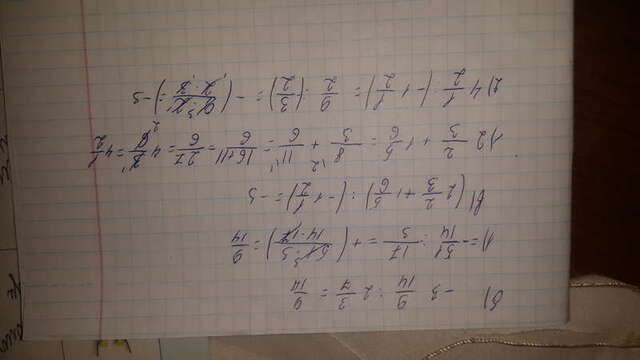 б) -3 9/14 : 2 3/7 = 9/14
1) = -51/14 : 17/5 = + (51·5/14·17) = 9/14
в) (2 2/3 + 1 5/6) : (-1 1/2) = -3
1) 2 2/3 + 1 5/6 = 8/3 + 11/6 = 16+11/6 = 27/6 = 4 3/6 = 4 1/2
2) 4 1/2 : (-1 1/2) = 9/2 : (3/2) = -(9·2/2·3) = -3